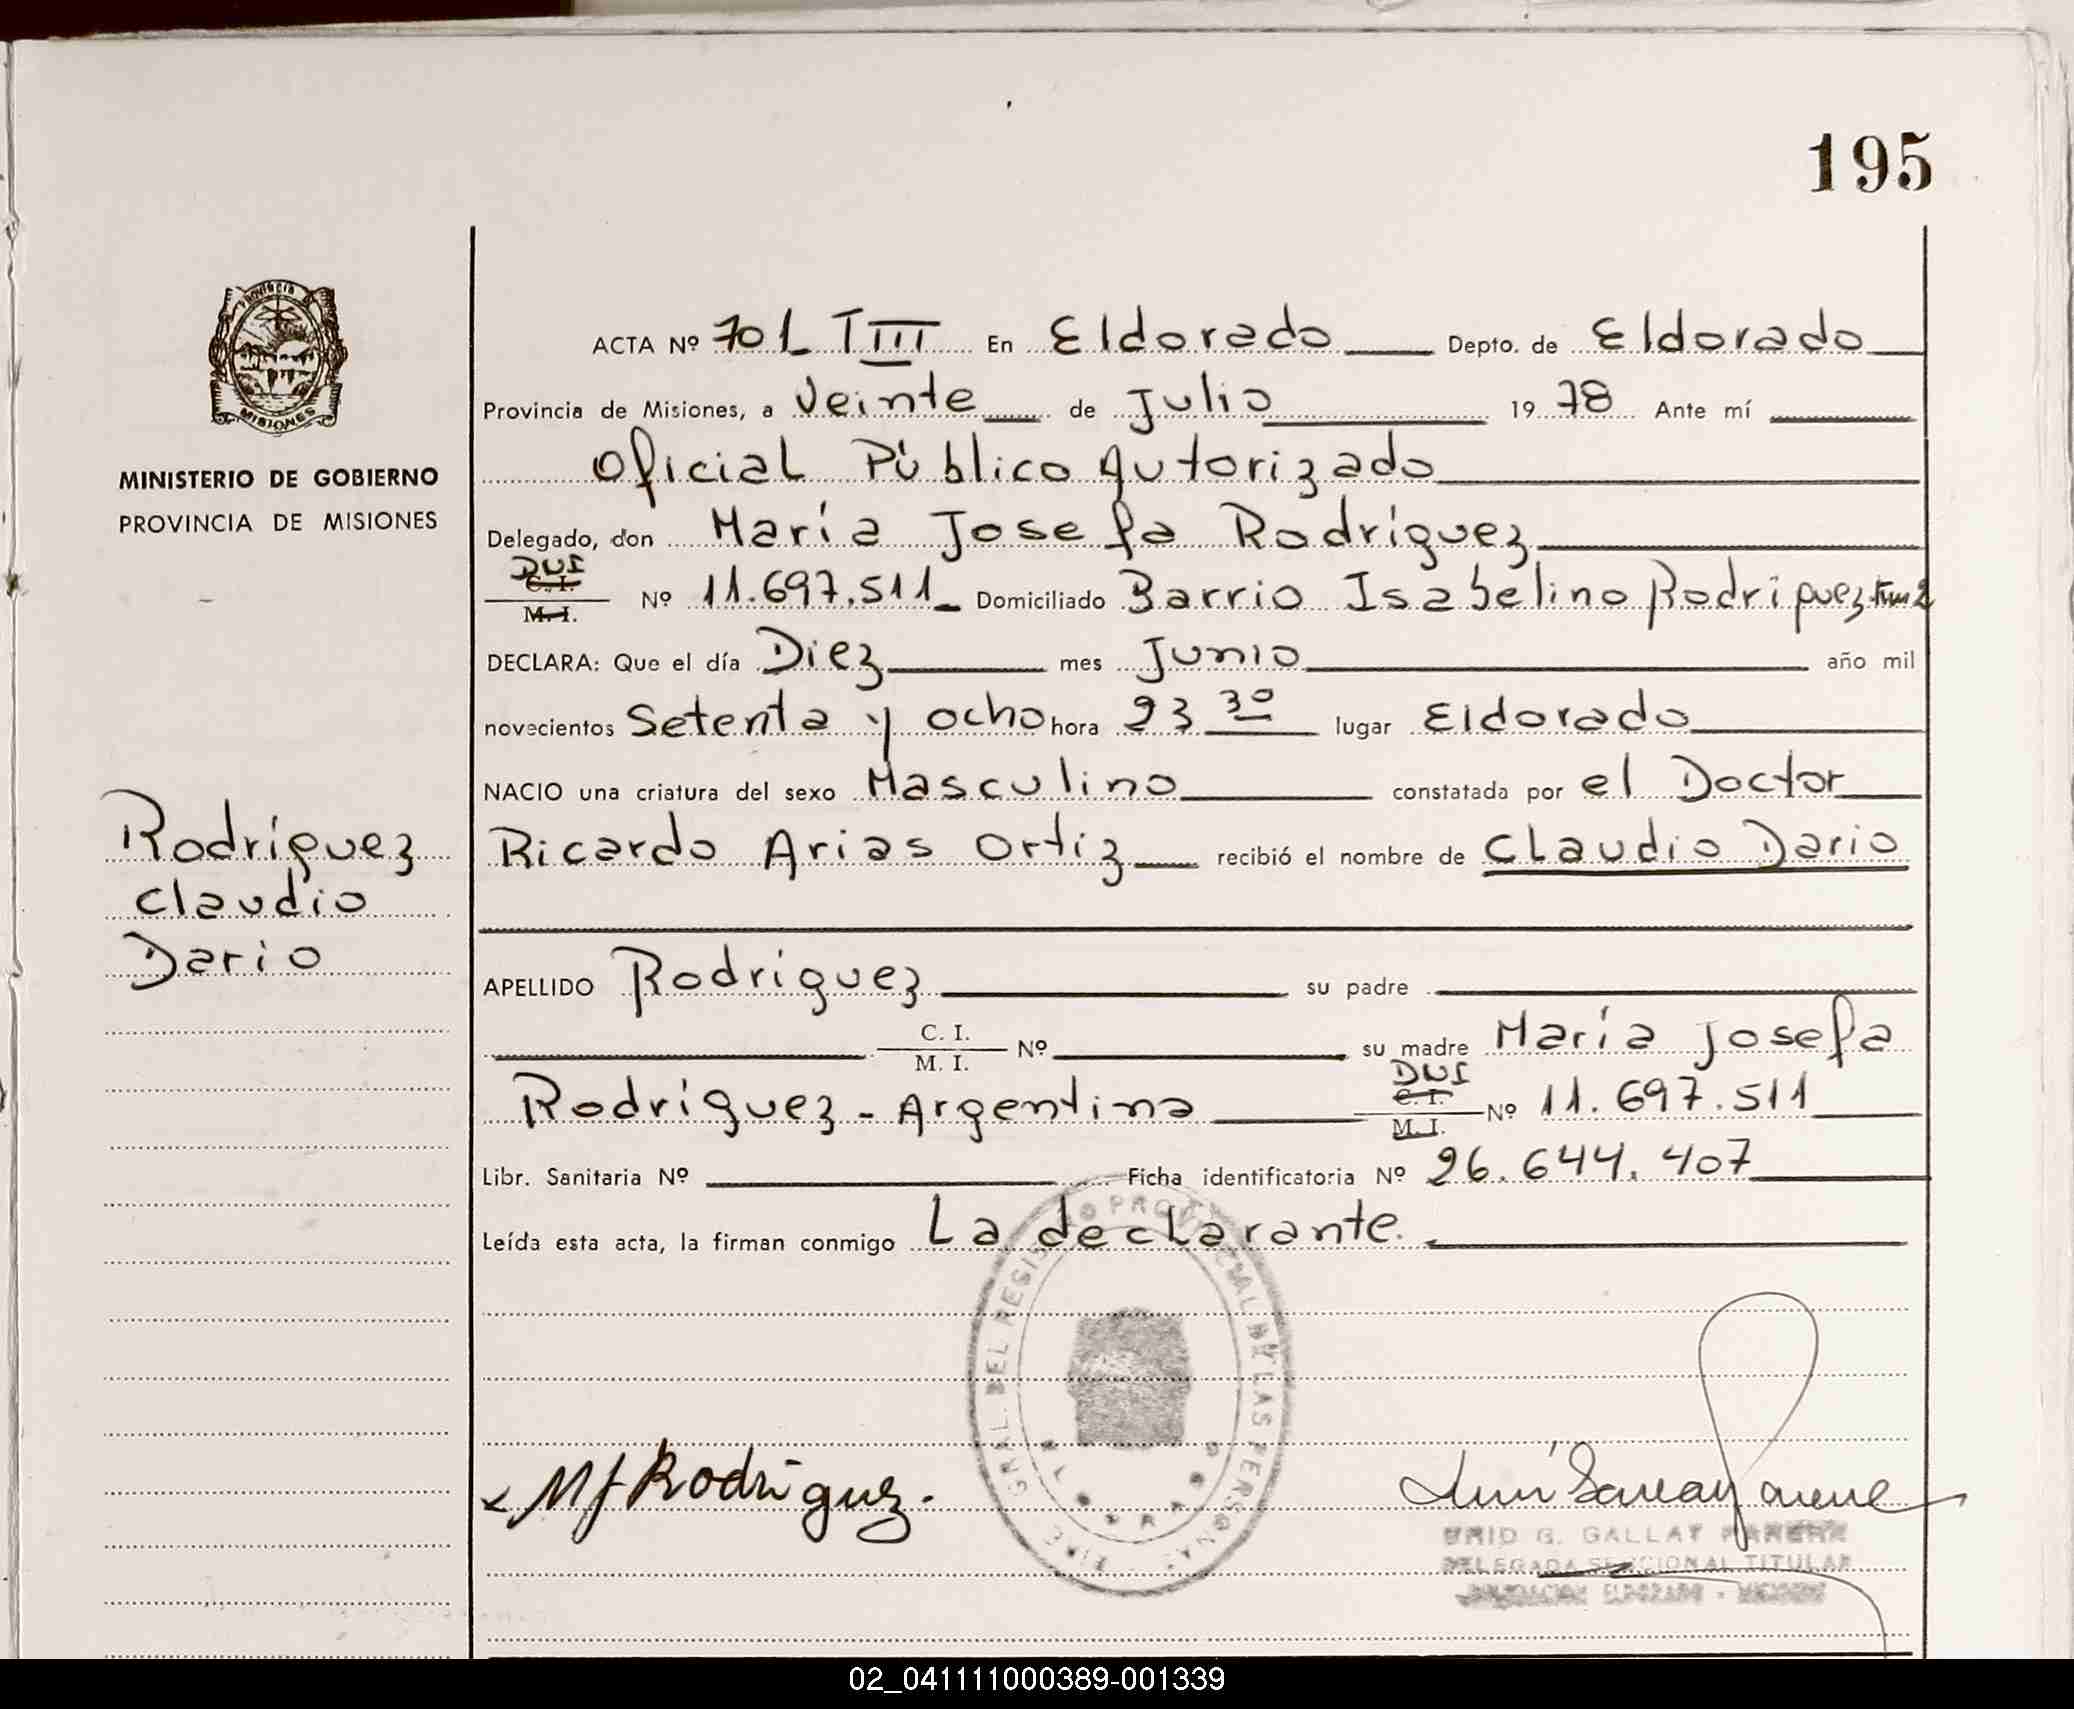 195
PROVINCIA
MISIONES
MINISTERIO DE GOBIERNO
PROVINCIA DE MISIONES
Rodríguez
Claudio
Dario
ACTA Nº 701 T III En Eldorado Depto. de Eldorado
Provincia de Misiones, a Veinte de Julio 19 78 Ante mí
Oficial Público Autorizado
Delegado, don María Josefa Rodríguez
DNI
C. I.
M. I. Nº 11.697.511 Domiciliado Barrio Isabelino Rodríguez Km 2
DECLARA: Que el día Diez mes Junio año mil
novecientos Setenta y ocho hora 23 30 lugar Eldorado
NACIO una criatura del sexo Masculino constatada por el Doctor
Ricardo Arias Ortiz recibió el nombre de Claudio Dario
APELLIDO Rodriguez su padre
C. I.
M. I. Nº su madre María Josefa
DNI
C. I.
Rodríguez - Argentina M. I. Nº 11.697.511
Libr. Sanitaria Nº Ficha identificatoria Nº 26.644.407
Leída esta acta, la firman conmigo La declarante.
GRAL. DEL REGISTRO PROVINCIAL DE LAS PERSONAS
MJRodriguez.
G. GALLAY
DELEGADA SECCIONAL TITULAR
02_041111000389-001339